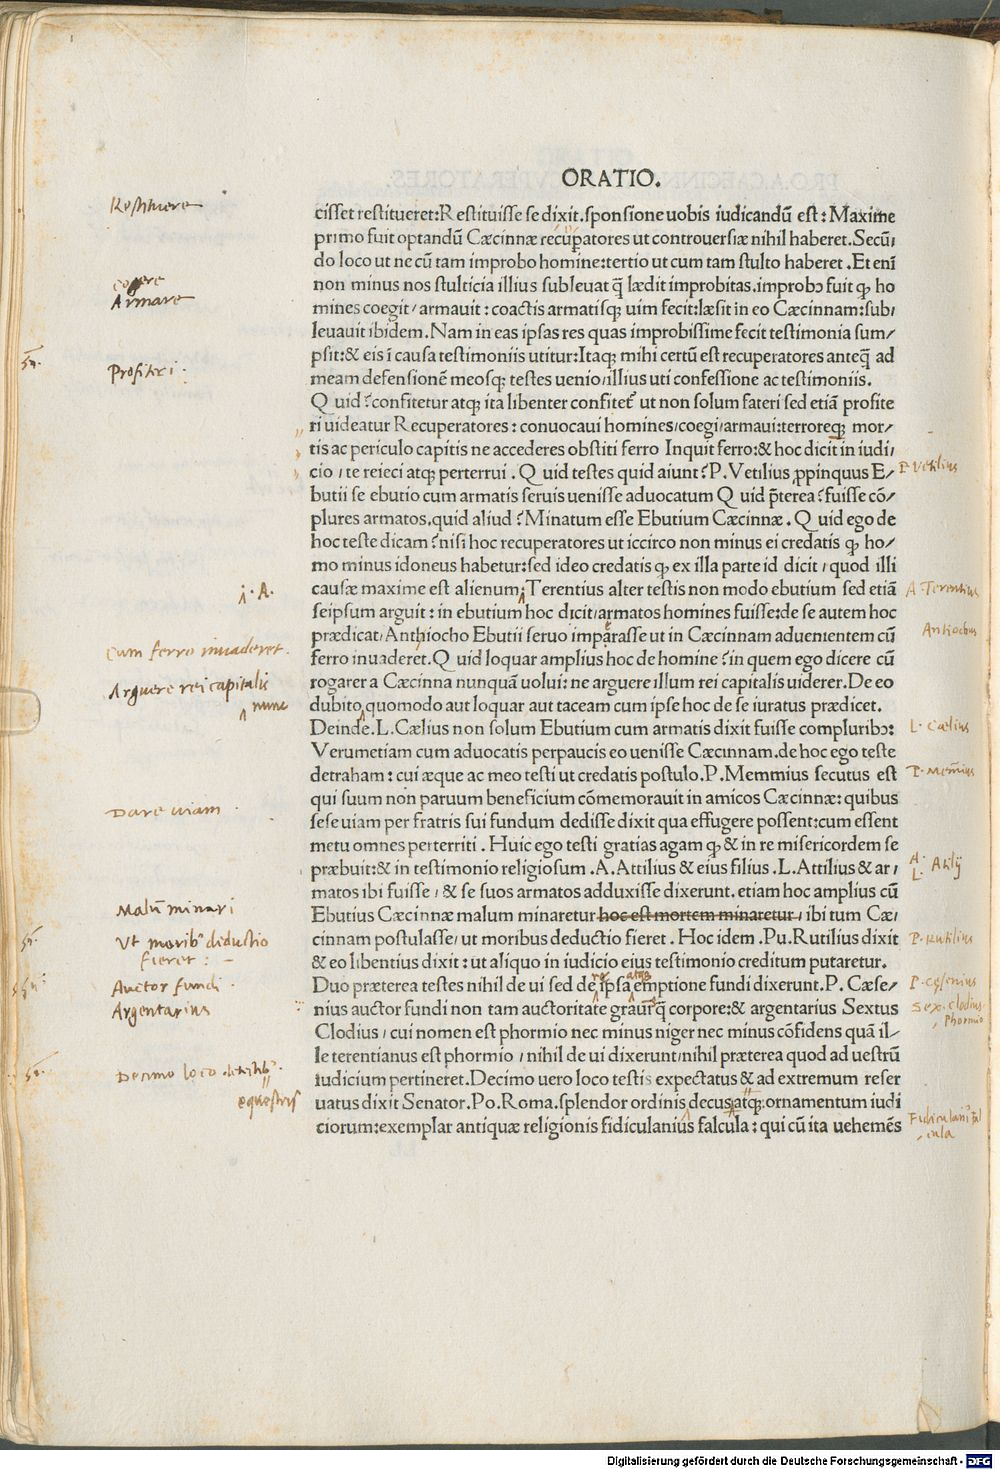 ORATIO.
cisset restitueret:Restituisse se dixit.sponsione uobis iudicandū est:Maxime
primo fuit optandū Cæcinnæ recuꝑatores ut controuersiæ nihil haberet.Secū/
do loco ut ne cū tam improbo homine:tertio ut cum tam stulto haberet.Et enī
non minus nos stulticia illius subleuat q̄ lædit improbitas.improbꝰ fuit ꝙ ho
mines coegit/armauit:coactis armatisꝗ uim fecit:læsit in eo Cæcinnam:sub/
leuauit ibidem.Nam in eas ipsas res quas improbissime fecit testimonia sum/
psit:& eis ī causa testimoniis utitur:Itaꝗ mihi certū est recuperatores anteꝗ̄ ad
meam defensionē meosꝗ testes uenio/illius uti confessione ac testimoniis.
Quid?confitetur atꝗ ita libenter confitet᷑ ut non solum fateri sed etiā profite
ri uideatur Recuperatores:conuocaui homines/coegi/armaui:terroreꝗ mor/
tis ac periculo capitis ne accederes obstiti ferro Inquit ferro:& hoc dicit in iudi/
cio/te reieci atꝗ perterrui.Quid testes quid aiunt?P.Vetilius ꝓpinquus E/
butii se ebutio cum armatis seruis uenisse aduocatum Quid p̄terea?fuisse cō/
plures armatos.quid aliud?Minatum esse Ebutium Cæcinnæ.Quid ego de
hoc teste dicam?nisi hoc recuperatores ut iccirco non minus ei credatis ꝙ ho/
mo minus idoneus habetur:sed ideo credatis ꝙ ex illa parte id dicit/quod illi
causæ maxime est alienum:Terentius alter testis non modo ebutium sed etiā
seipsum arguit:in ebutium hoc dicit/armatos homines fuisse:de se autem hoc
prædicat/Anthiocho Ebutii seruo imparasse ut in Cæcinnam aduenientem cū
ferro inuaderet.Quid loquar amplius hoc de homine?in quem ego dicere cū
rogarer a Cæcinna nunquā uolui:ne arguere illum rei capitalis uiderer.De eo
dubito quomodo aut loquar aut taceam cum ipse hoc de se iuratus prædicet.
Deinde.L.Cælius non solum Ebutium cum armatis dixit fuisse compluribꝰ:
Verumetiam cum aduocatis perpaucis eo uenisse Cæcinnam.de hoc ego teste
detraham:cui æque ac meo testi ut credatis postulo.P.Memmius secutus est
qui suum non paruum beneficium cōmemorauit in amicos Cæcinnæ:quibus
sese uiam per fratris sui fundum dedisse dixit qua effugere possent:cum essent
metu omnes perterriti.Huic ego testi gratias agam ꝙ & in re misericordem se
præbuit:& in testimonio religiosum.A.Attilius & eius filius.L.Attilius & ar/
matos ibi fuisse/& se suos armatos adduxisse dixerunt.etiam hoc amplius cū
Ebutius Cæcinnæ malum minaretur hoc est mortem minaretur/ibi tum Cæ/
cinnam postulasse/ut moribus deductio fieret.Hoc idem.Pu.Rutilius dixit
& eo libentius dixit:ut aliquo in iudicio eius testimonio creditum putaretur.
Duo præterea testes nihil de ui sed de ipsa emptione fundi dixerunt.P.Cæse/
nius auctor fundi non tam auctoritate graui ꝗ̄ corpore:& argentarius Sextus
Clodius/cui nomen est phormio nec minus niger nec minus cōfidens quā il/
le terentianus est phormio/nihil de ui dixerunt/nihil præterea quod ad uestrū
iudicium pertineret.Decimo uero loco testis expectatus & ad extremum reser
uatus dixit Senator.Po.Roma.splendor ordinis decus atꝗ ornamentum iudi
ciorum:exemplar antiquæ religionis fidiculanius falcula:qui cū ita uehemēs
Restituere
cogere
Armare
Profiteri:
i.A.
Cum ferro inuaderet.
Arguere rei capitalis
nunc
Dare uiam
Malū minari
Vt moribꝰ deductio
fieret:
Auctor fundi
Argentarius
Decimo loco
equestris
P. Vetilius
A. Terentius
Antiochus
L. Cælius
P. Mem̄ius
A.
L. Atilij
P. Rutilius
P. Cęsenius
Sex. Clodius
Phormio
Digitalisierung gefördert durch die Deutsche Forschungsgemeinschaft - DFG